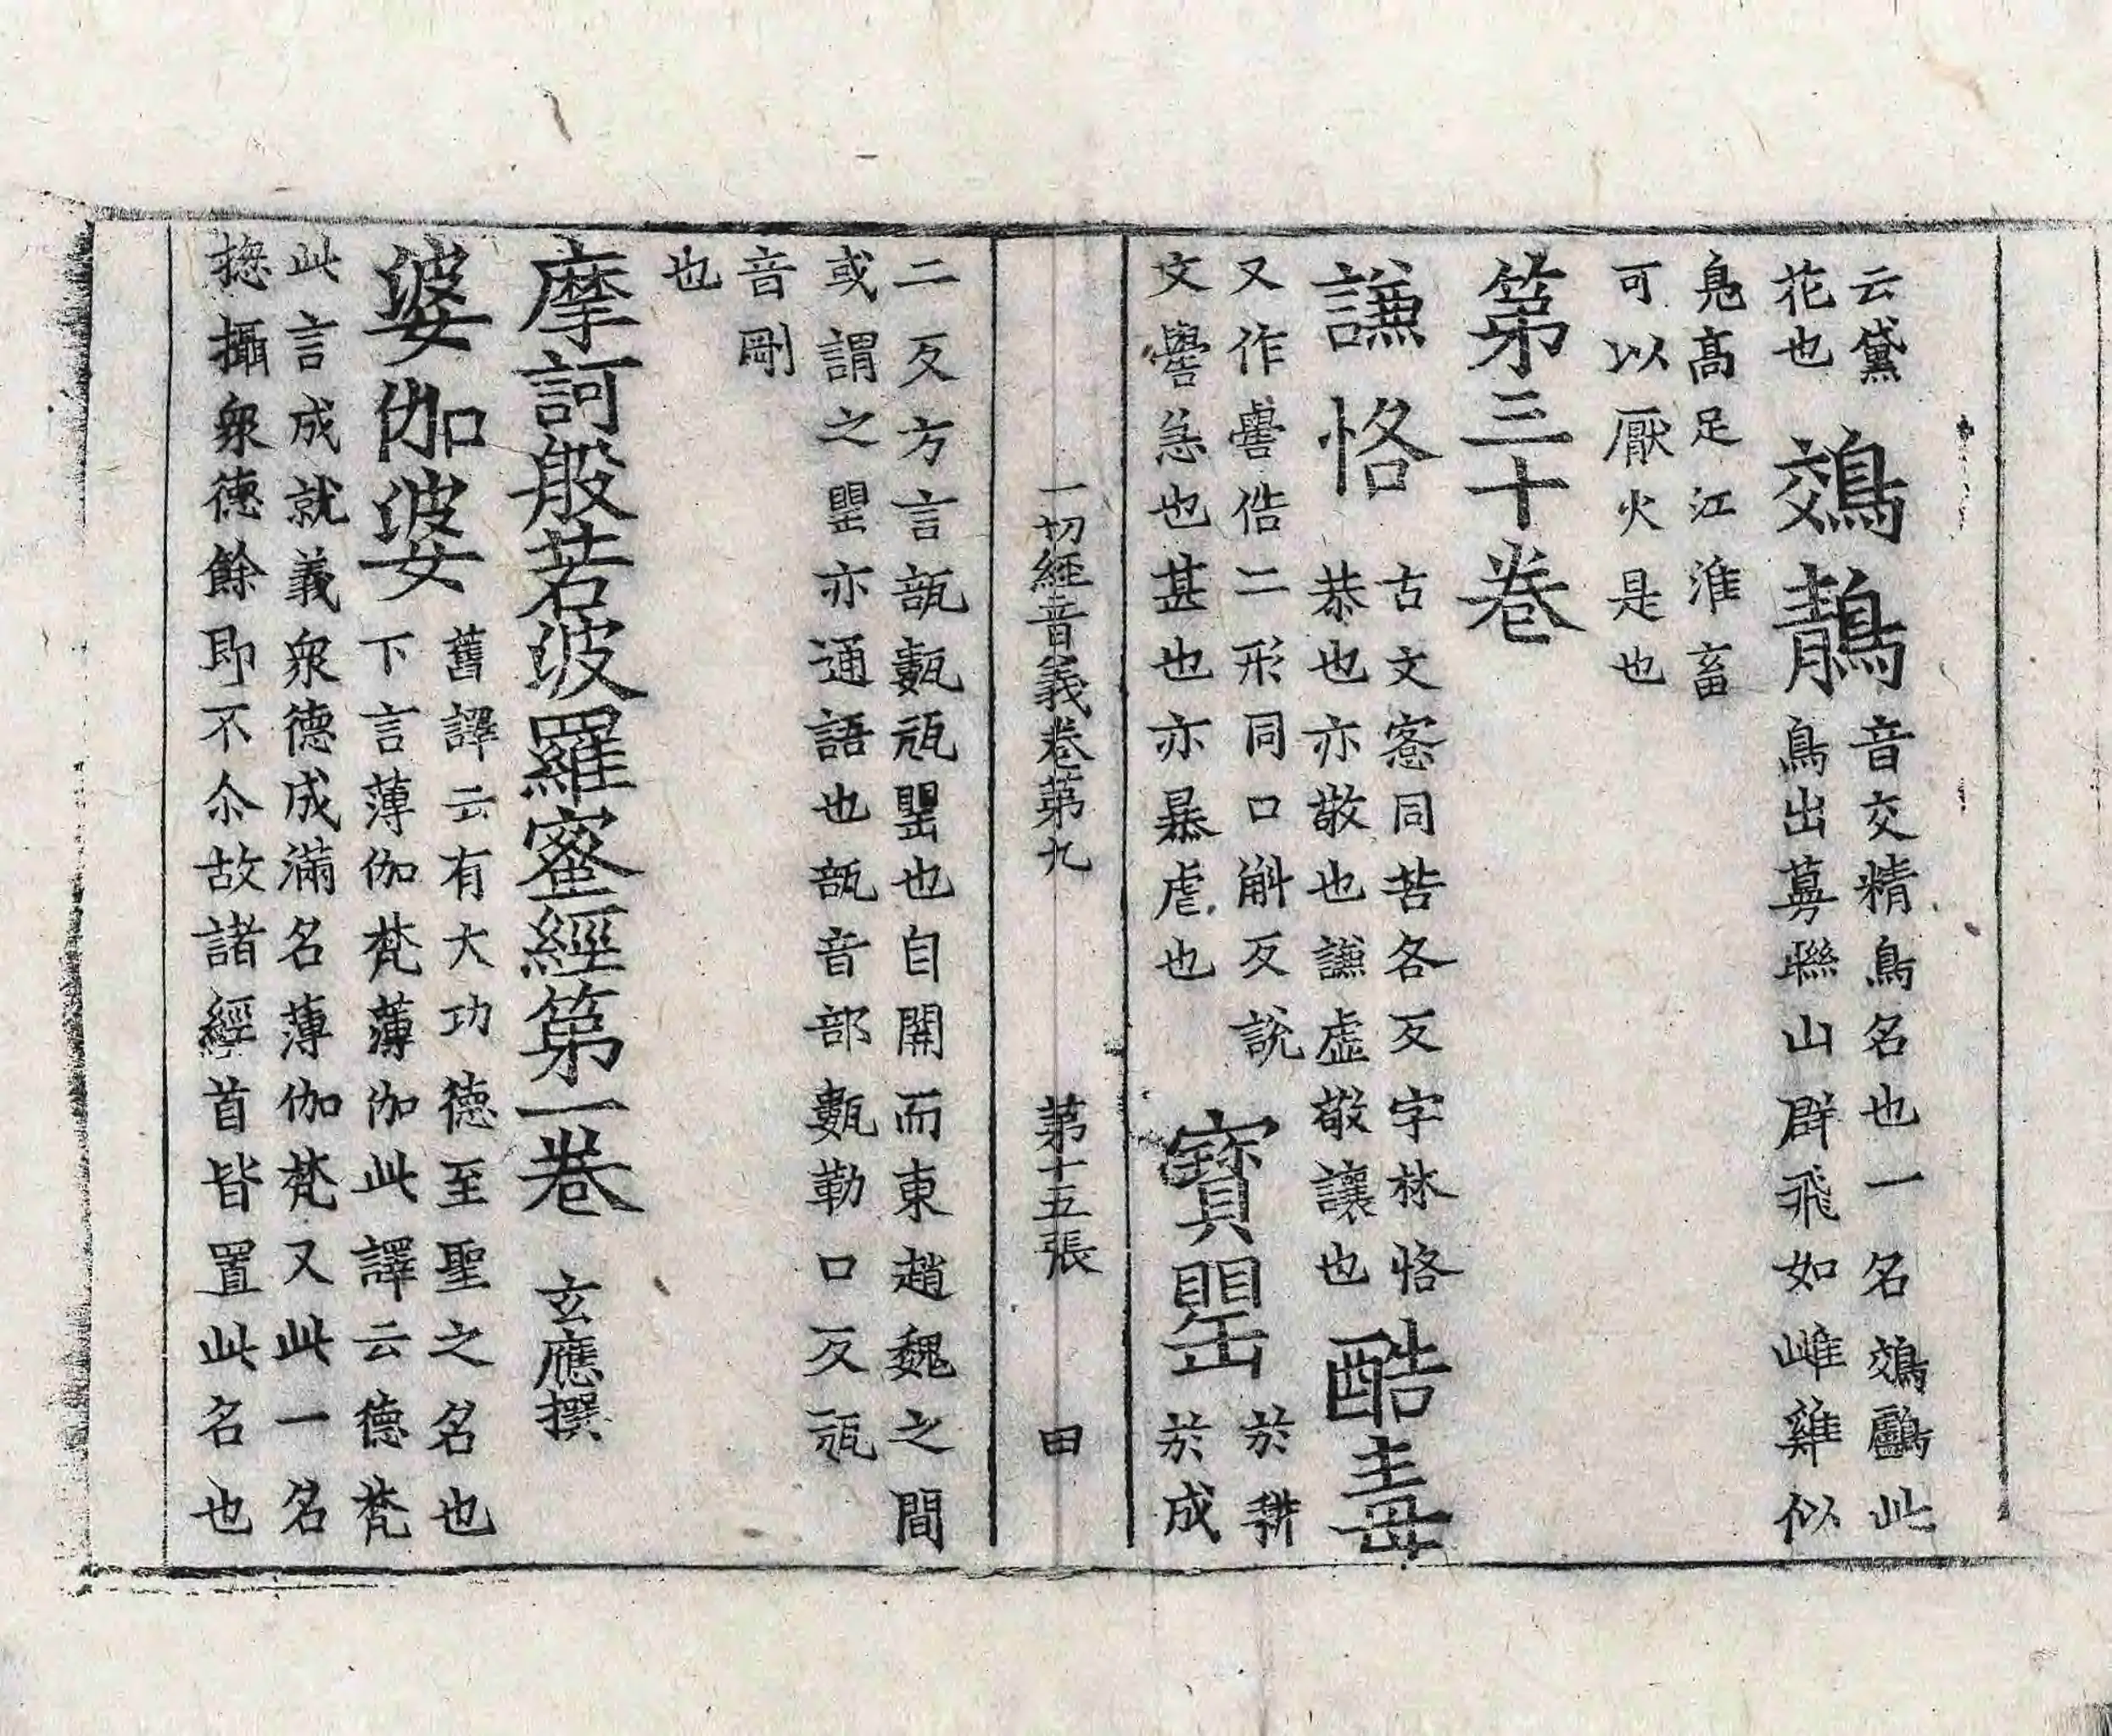 云黛
花也
鵁鶄
音交精鳥名也一名鵁鸕此
鳥出蓴聯山群飛如雌雞似
鳧高足江淮畜
可以厭火是也
第三十卷
謙恪
古文愙同苦各反字林恪
恭也亦敬也謙虛敬讓也
酷毒
又作嚳俈二形同口斛反說
文嚳急也甚也亦暴虐也
寶罌
於耕
於成
一切經音義卷第九 第十五張 田
二反方言瓿甊瓨罌也自關而東趙魏之間
或謂之罌亦通語也瓿音部甊勒口反瓨
音剛
也
摩訶般若波羅蜜經第一卷 玄應撰
婆伽婆
舊譯云有大功德至聖之名也
下言薄伽梵薄伽此譯云德梵
此言成就義衆德成滿名薄伽梵又此一名
揔攝衆德餘即不尒故諸經首皆置此名也